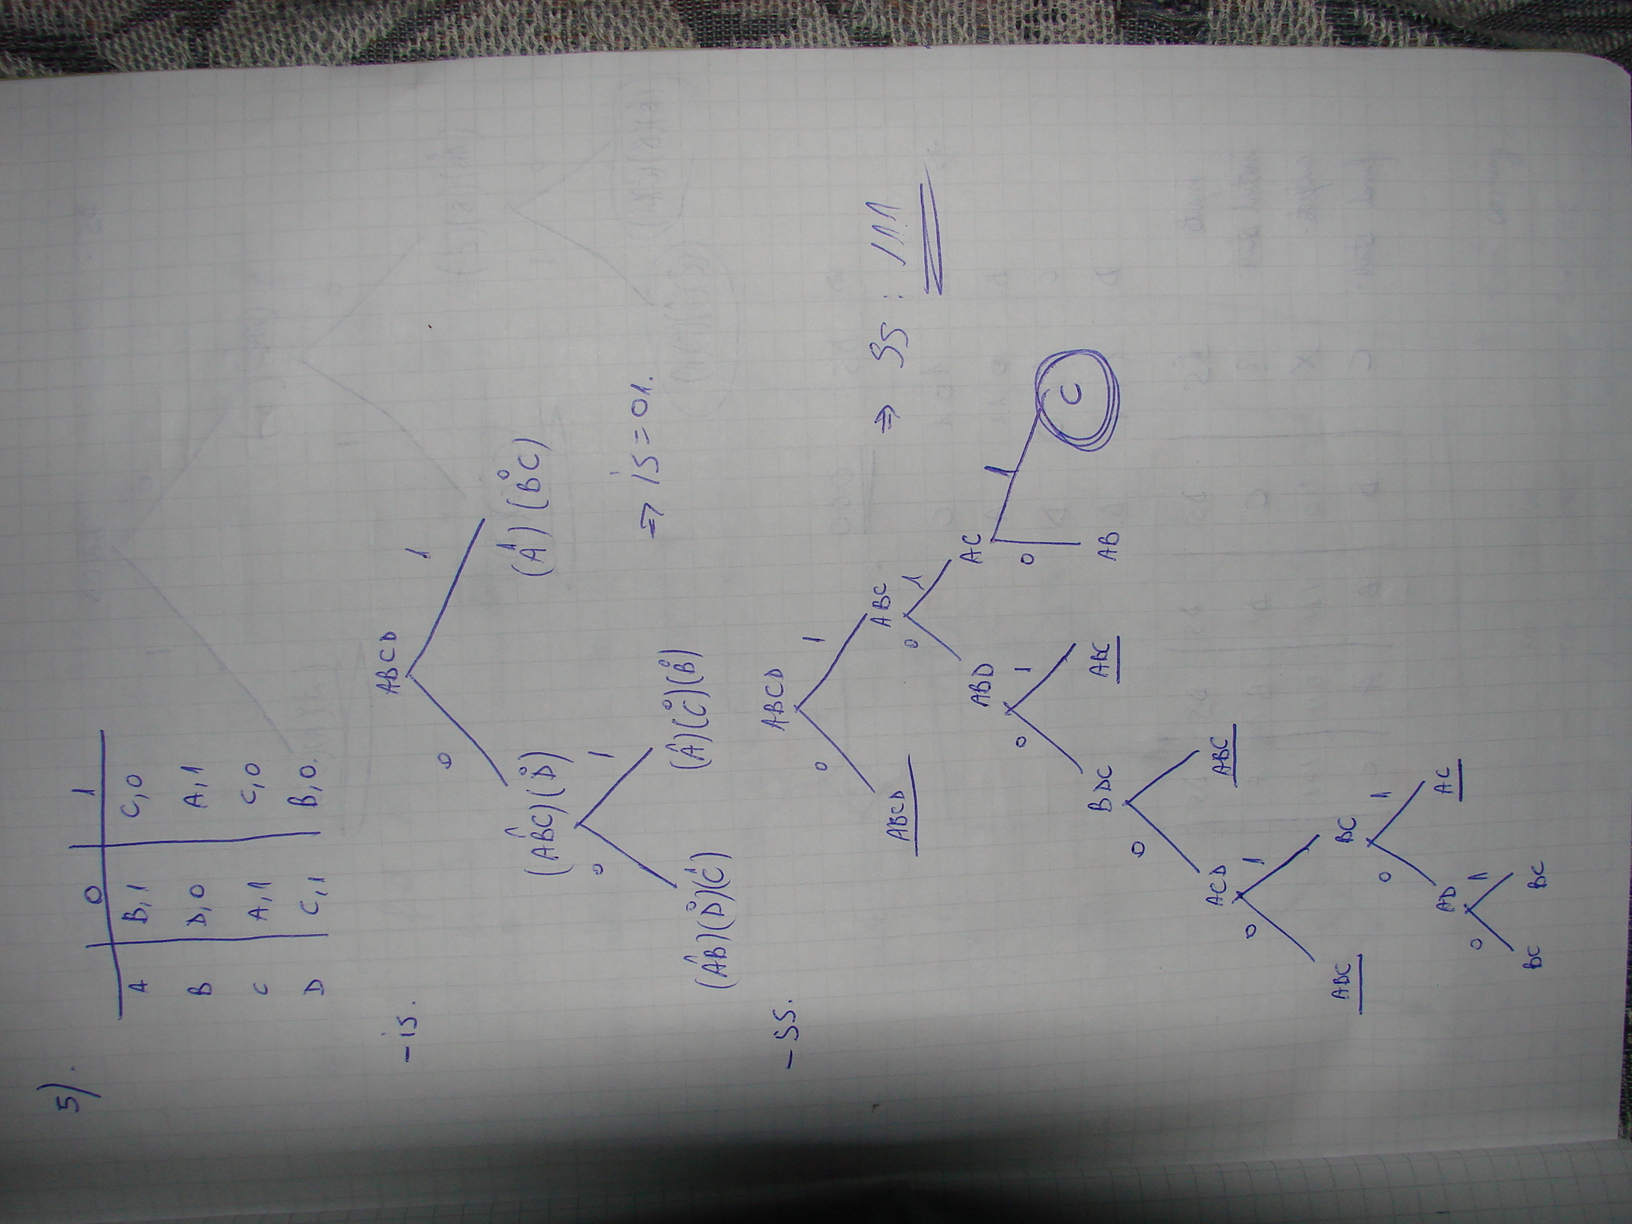 5).
0 1
A B,1 C,0
B D,0 A,1
C A,1 C,0
D C,1 B,0.
-is.
ABCD
0 1
(ABC)(D) (A)(BC)
1 0 1 0
0 1
(AB)(D)(C) (A)(C)(B)
1 0 1 1 0 0
⇒ is = 01.
-ss.
ABCD
0 1
ABCD ABC
0 1
ABD AC
0 1 0 1
BDC ABC AB C
0
ACD ABC
0 1
ABC BC
0 1
AD AC
0 1
BC BC
⇒ ss : 111